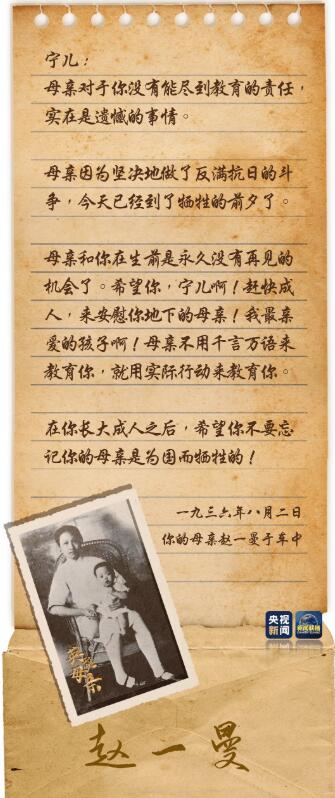 宁儿：
母亲对于你没有能尽到教育的责任，
实在是遗憾的事情。
母亲因为坚决地做了反满抗日的斗
争，今天已经到了牺牲的前夕了。
母亲和你在生前是永久没有再见的
机会了。希望你，宁儿啊！赶快成
人，来安慰你地下的母亲！我最亲
爱的孩子啊！母亲不用千言万语来
教育你，就用实际行动来教育你。
在你长大成人之后，希望你不要忘
记你的母亲是为国而牺牲的！
一九三六年八月二日
你的母亲赵一曼于车中
央视
新闻
英雄
母亲
赵一曼